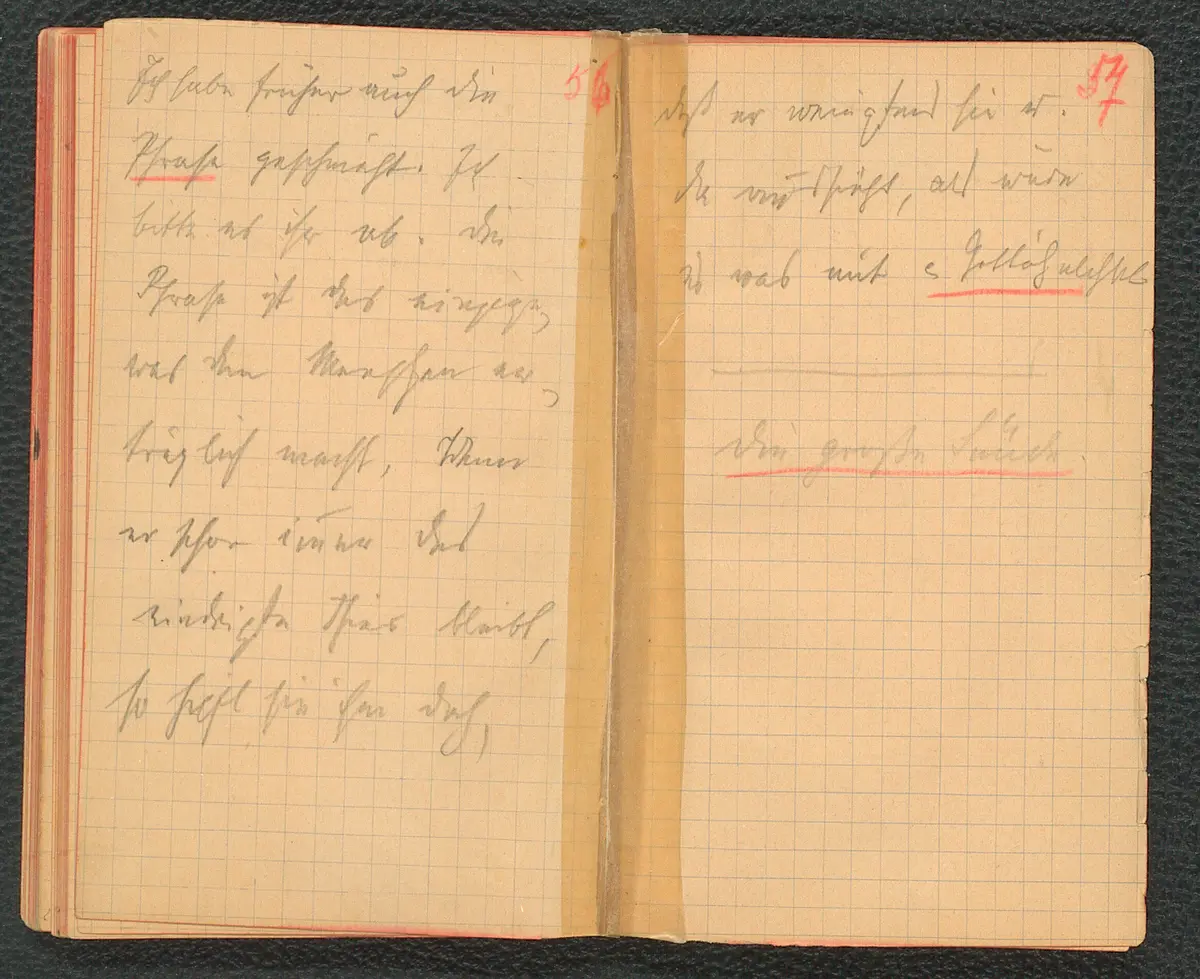 56
Ich habe früher auch die
Phrase geschmäht. Ich
bitte es ihr ab. Die
Phrase ist das einzige,
was den Menschen er-
träglich macht. Wenn
er schon immer das
niedrigste Thier bleibt,
so hilft sie ihm doch,
57
daß er wenigstens hie u.
da aussieht, als wäre
es was mit Gottähnlichk
Die große Sünde.